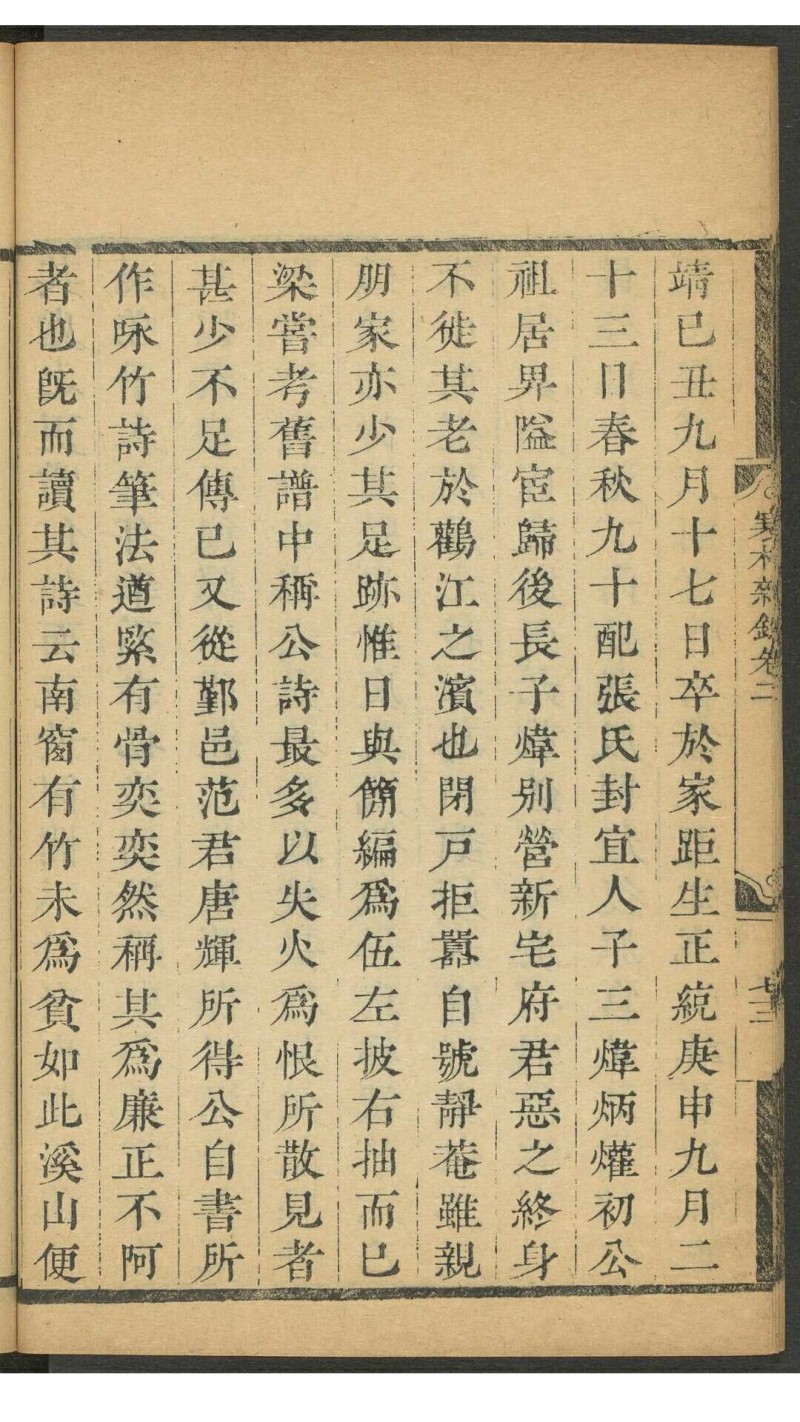 靖已丑九月十七日卒於家距生正統庚申九月二
十三日春秋九十配張氏封宜人子三煒炳爟初公
祖居畀隘宦歸後長子煒別營新宅府君惡之終身
不徙其老於鸛江之濱也閉戸拒囂自號靜菴雖親
朋家亦少其足跡惟日與簡編爲伍左披右抽而巳
梁嘗考舊譜中稱公詩最多以失火爲恨所散見者
甚少不足傳已又從鄞邑范君唐輝所得公自書所
作咏竹詩筆法遒緊有骨奕奕然稱其爲廉正不阿
者也旣而讀其詩云南窗有竹未爲貧如此溪山便